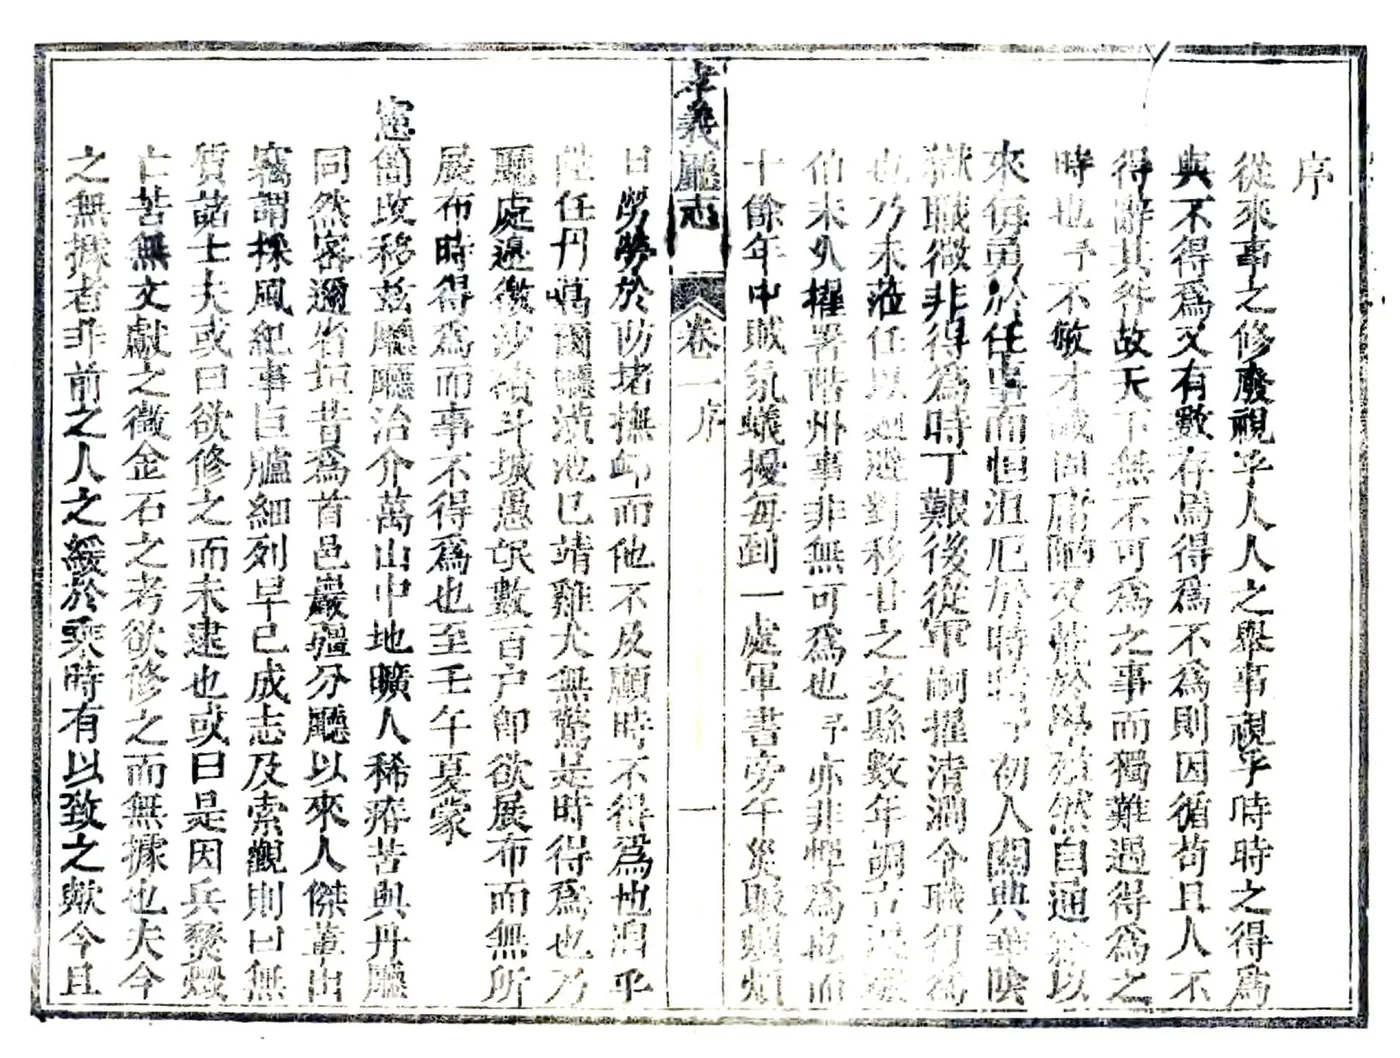 序
從來事之修廢視乎人人之舉事視乎時時之得爲
與不得爲又有數存焉得爲不爲則因循苟且人不
得辭其咎故天下無不可爲之事而獨難遇得爲之
時也予不敏才識固庸陋又於 然自通 以
來每勇於任事而恒沮厄於時時予初入關典華陰
獄職微非得爲時丁艱後從軍嗣擢清澗令職得爲
也乃未蒞任以迴避對移甘之文縣數年
伯未久擢署階州事非無可爲也予亦非憚爲也而
十餘年中賊氛蟻擾每到一處軍書旁午災賑頻頻
日勞勞於防堵撫卹而他不及顧時不得爲也洎乎
陞任丹噶爾廳潢池已靖雞犬無驚是時得爲也乃
廳處邊徼沙磧斗城愚氓數百户卽欲展布而無所
展布時得爲而事不得爲也至壬午夏蒙
憲簡改移茲廳廳治介萬山中地曠人稀瘠苦與丹廳
同然密邇省垣昔爲首邑巖疆分廳以來人傑輩出
竊謂採風紀事巨臚細列早已成志及索觀則曰無
質諸士大夫或曰欲修之而未逮也或曰是因兵燹燬
亡苦無文獻之徵金石之考欲修之而無據也夫今
之無據者非前之人之緩於乘時有以致之歟今且
孝義廳志 卷一序 一